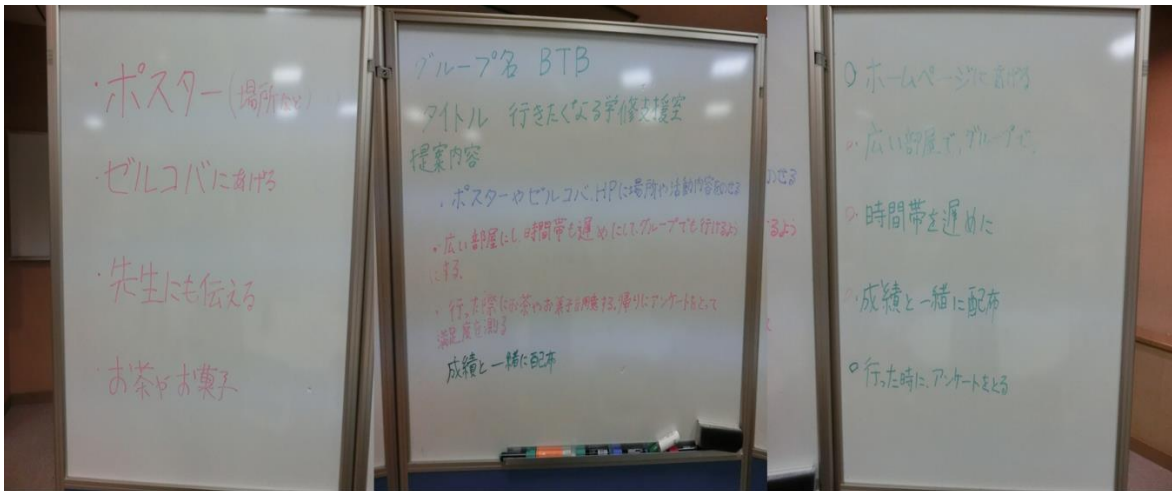 ・ポスター(場所など)
・ゼルコバにあげる
・先生にも伝える
・お茶やお菓子
グループ名 BTB
タイトル 行きたくなる学修支援室
提案内容
・ポスターやゼルコバ、HPに場所や活動内容をのせる
・広い部屋にし、時間帯も遅めにして、グループでも行けるよう
にする。
・行った際にお茶やお菓子を用意する。帰りにアンケートをとって
満足度を測る
成績と一緒に配布
のせる
るよう
○ホームページにあげる
○広い部屋で、グループで、
○時間帯を遅めに
○成績と一緒に配布
○行った時に、アンケートをとる